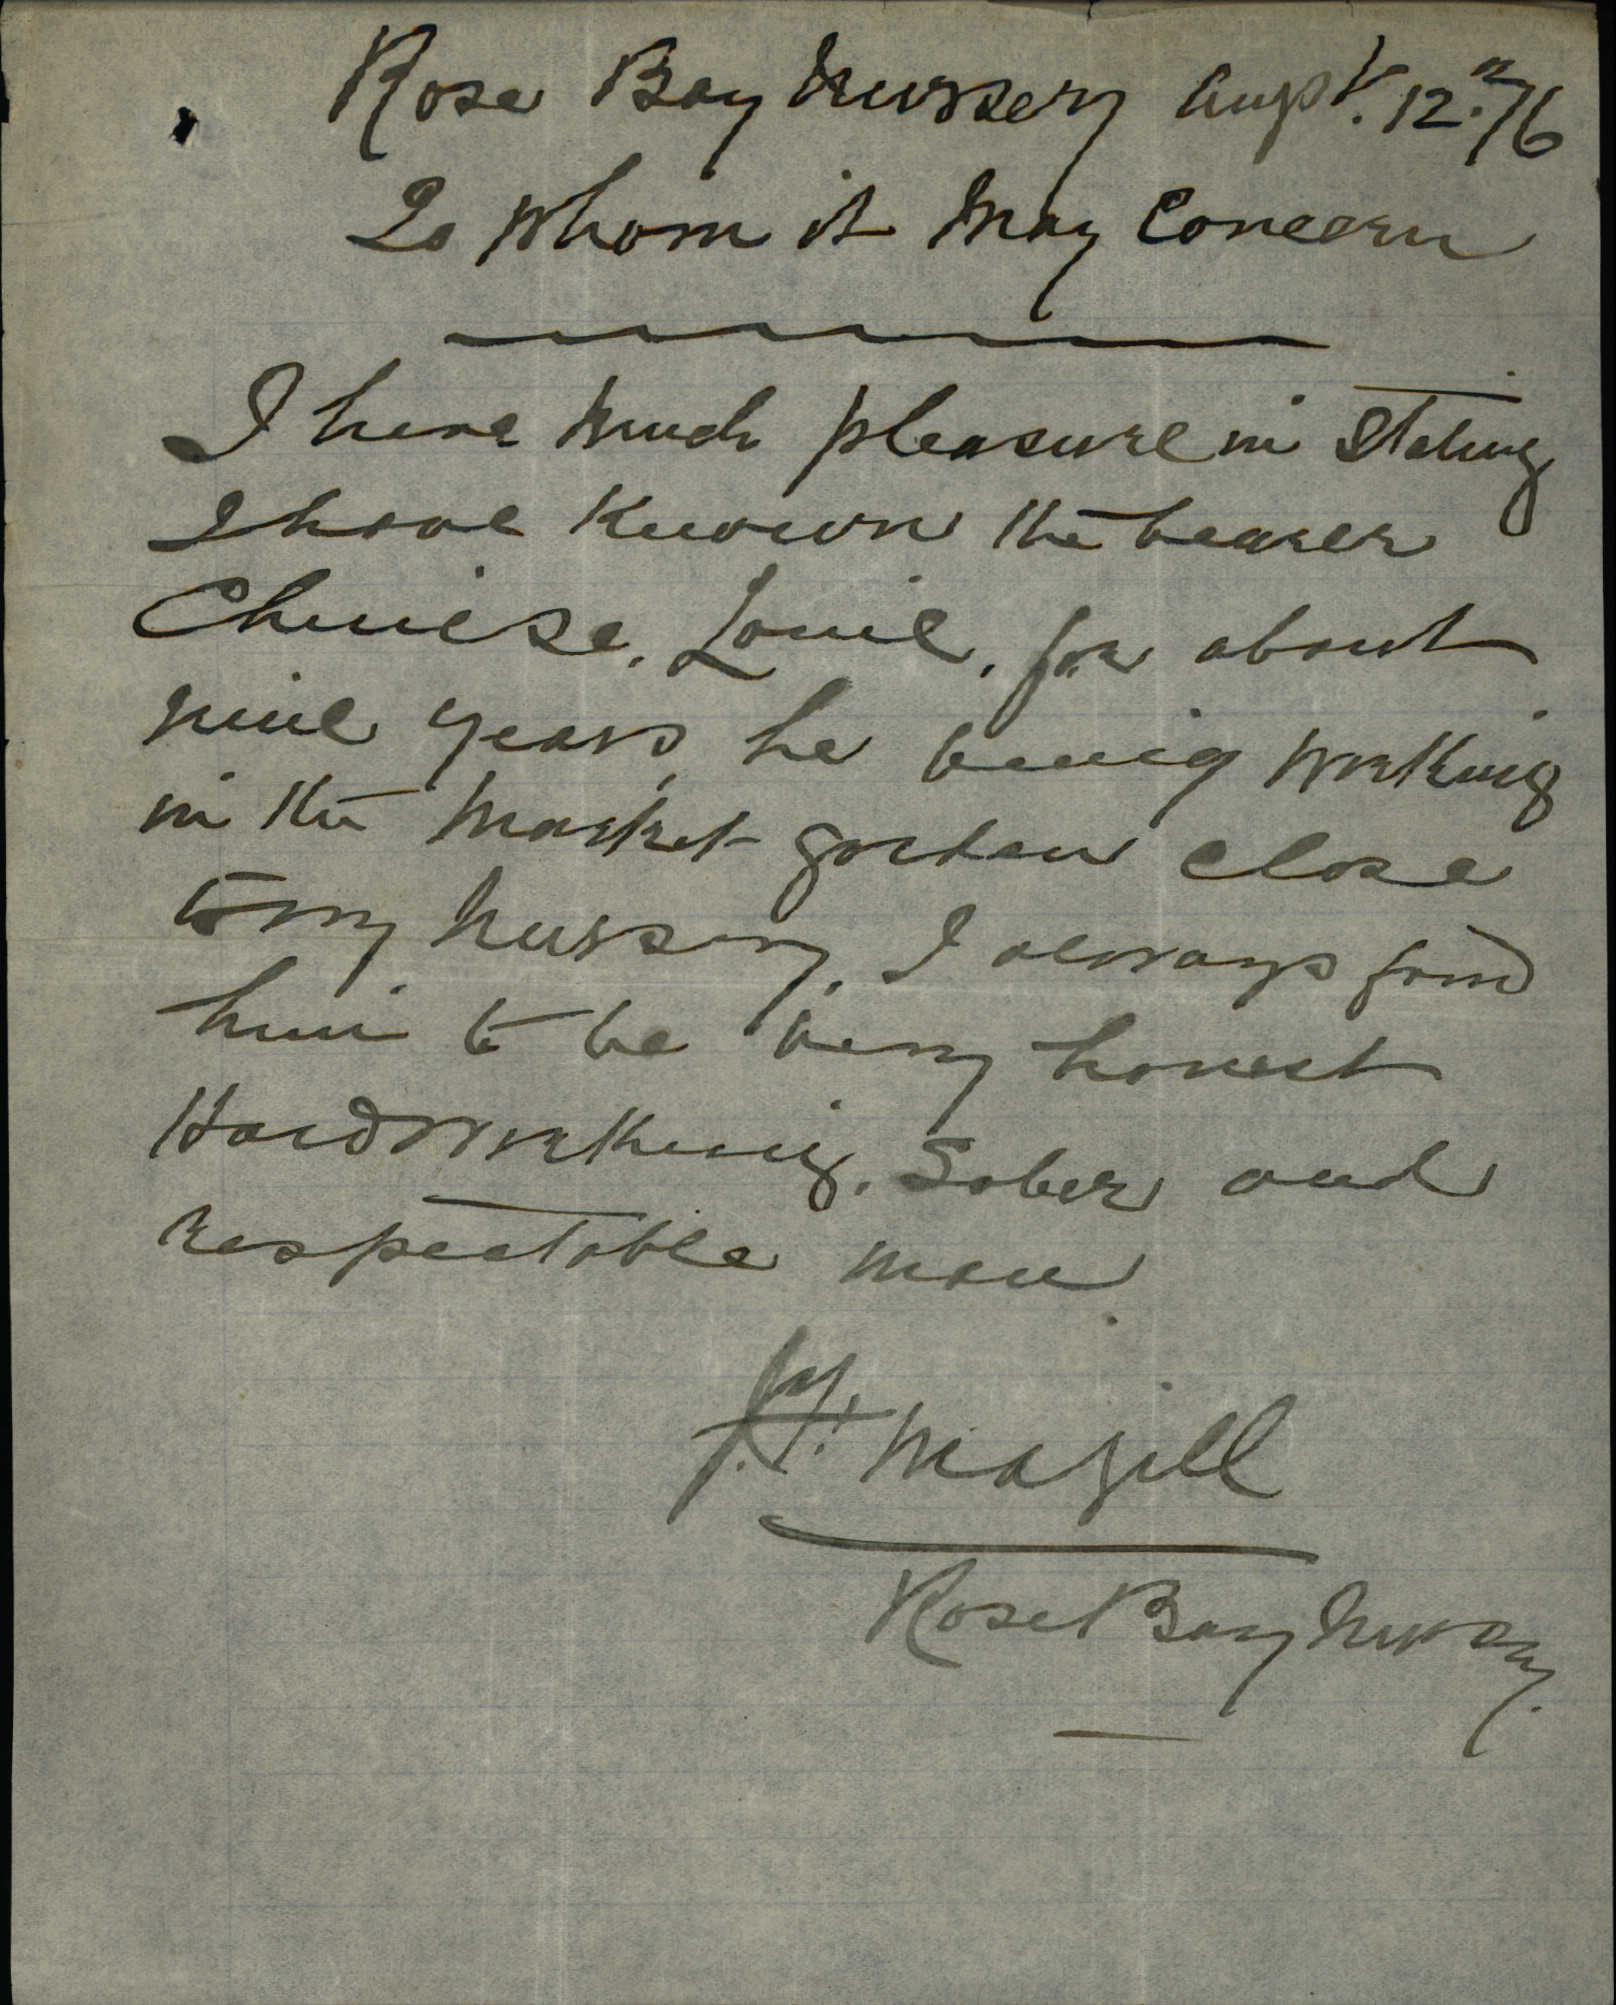 Rose Bay Nursery Augst. 12th/16
To Whom it May Concern
I have Much pleasure in Stating
I have Known the bearer
Chinese, Louie, for about
nine years, he being Working
in the Market garden close
to my Nursery, I always found
him to be Very honest
Hard Working, Sober and
respectable man.
Magill
Rose Bay Nursery.